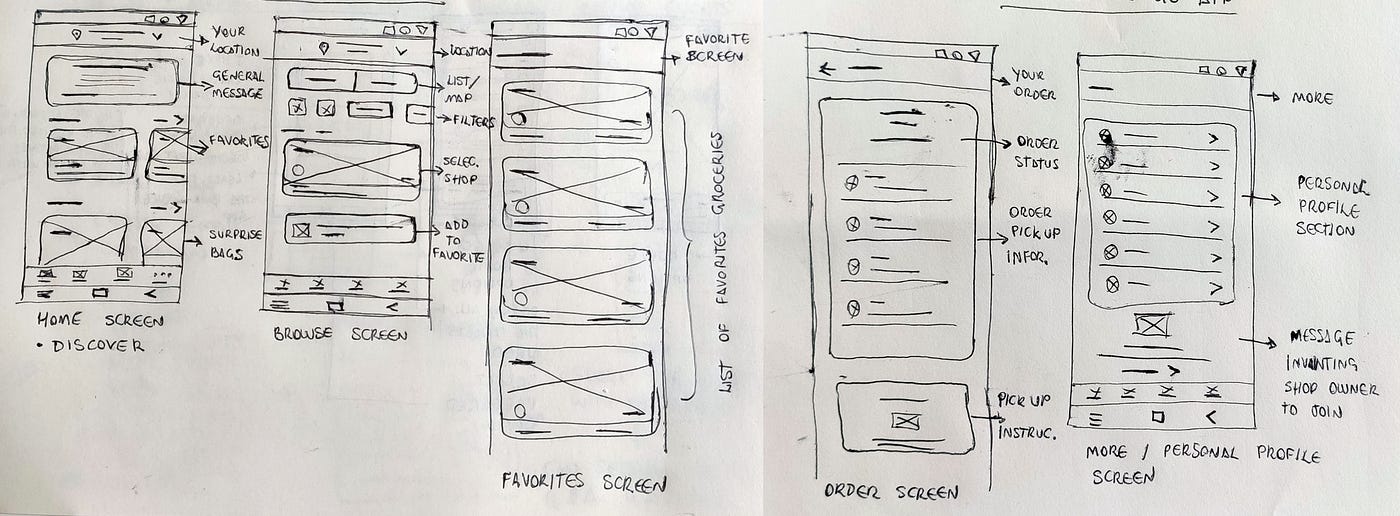 YOUR
LOCATION
GENERAL
MESSAGE
FAVORITES
SURPRISE
BAGS
HOME SCREEN
• DISCOVER
LOCATION
LIST/
MAP
FILTERS
SELEC.
SHOP
ADD
TO
FAVORITE
BROWSE SCREEN
FAVORITE
SCREEN
LIST OF FAVORITES GROCERIES
FAVORITES SCREEN
YOUR
ORDER
ORDER
STATUS
ORDER
PICK UP
INFOR.
PICK UP
INSTRUC.
ORDER SCREEN
MORE
PERSONAL
PROFILE
SECTION
MESSAGE
INVANTING
SHOP OWNER
TO JOIN
MORE / PERSONAL PROFILE
SCREEN